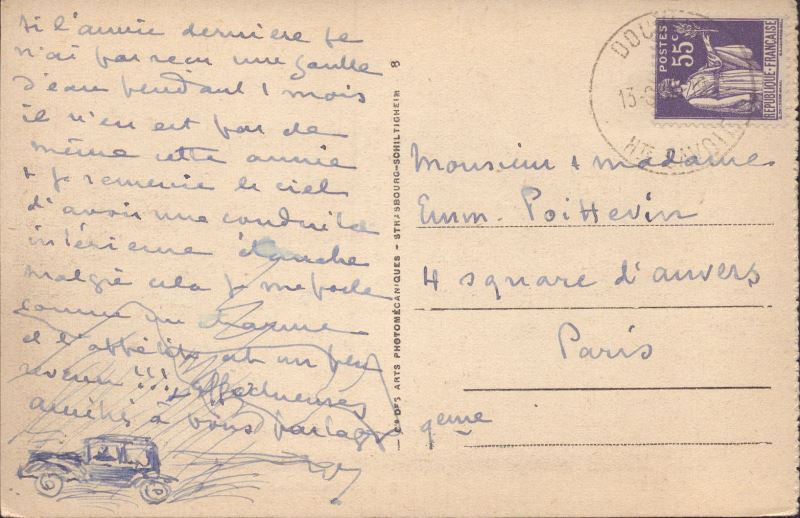 si l'année dernière je
n'ai pas reçu une goutte
d'eau pendant 1 mois
il n'en est pas de
même cette année
+ je remercie le ciel
d'avoir une conduite
intérieure étanche
malgré cela je me porte
comme un charme
et l'appétit est un peu
revenu !!! affectueuses
amitiés à vous partager
— Cie DES ARTS PHOTOMÉCANIQUES - STRASBOURG-SCHILTIGHEIM 8
DOU
13-
HTE SAVOIE
POSTES
55c
REPUBLIQUE-FRANÇAISE
Monsieur + madame
Emm. Poittevin
4 square d'anvers
Paris
9eme